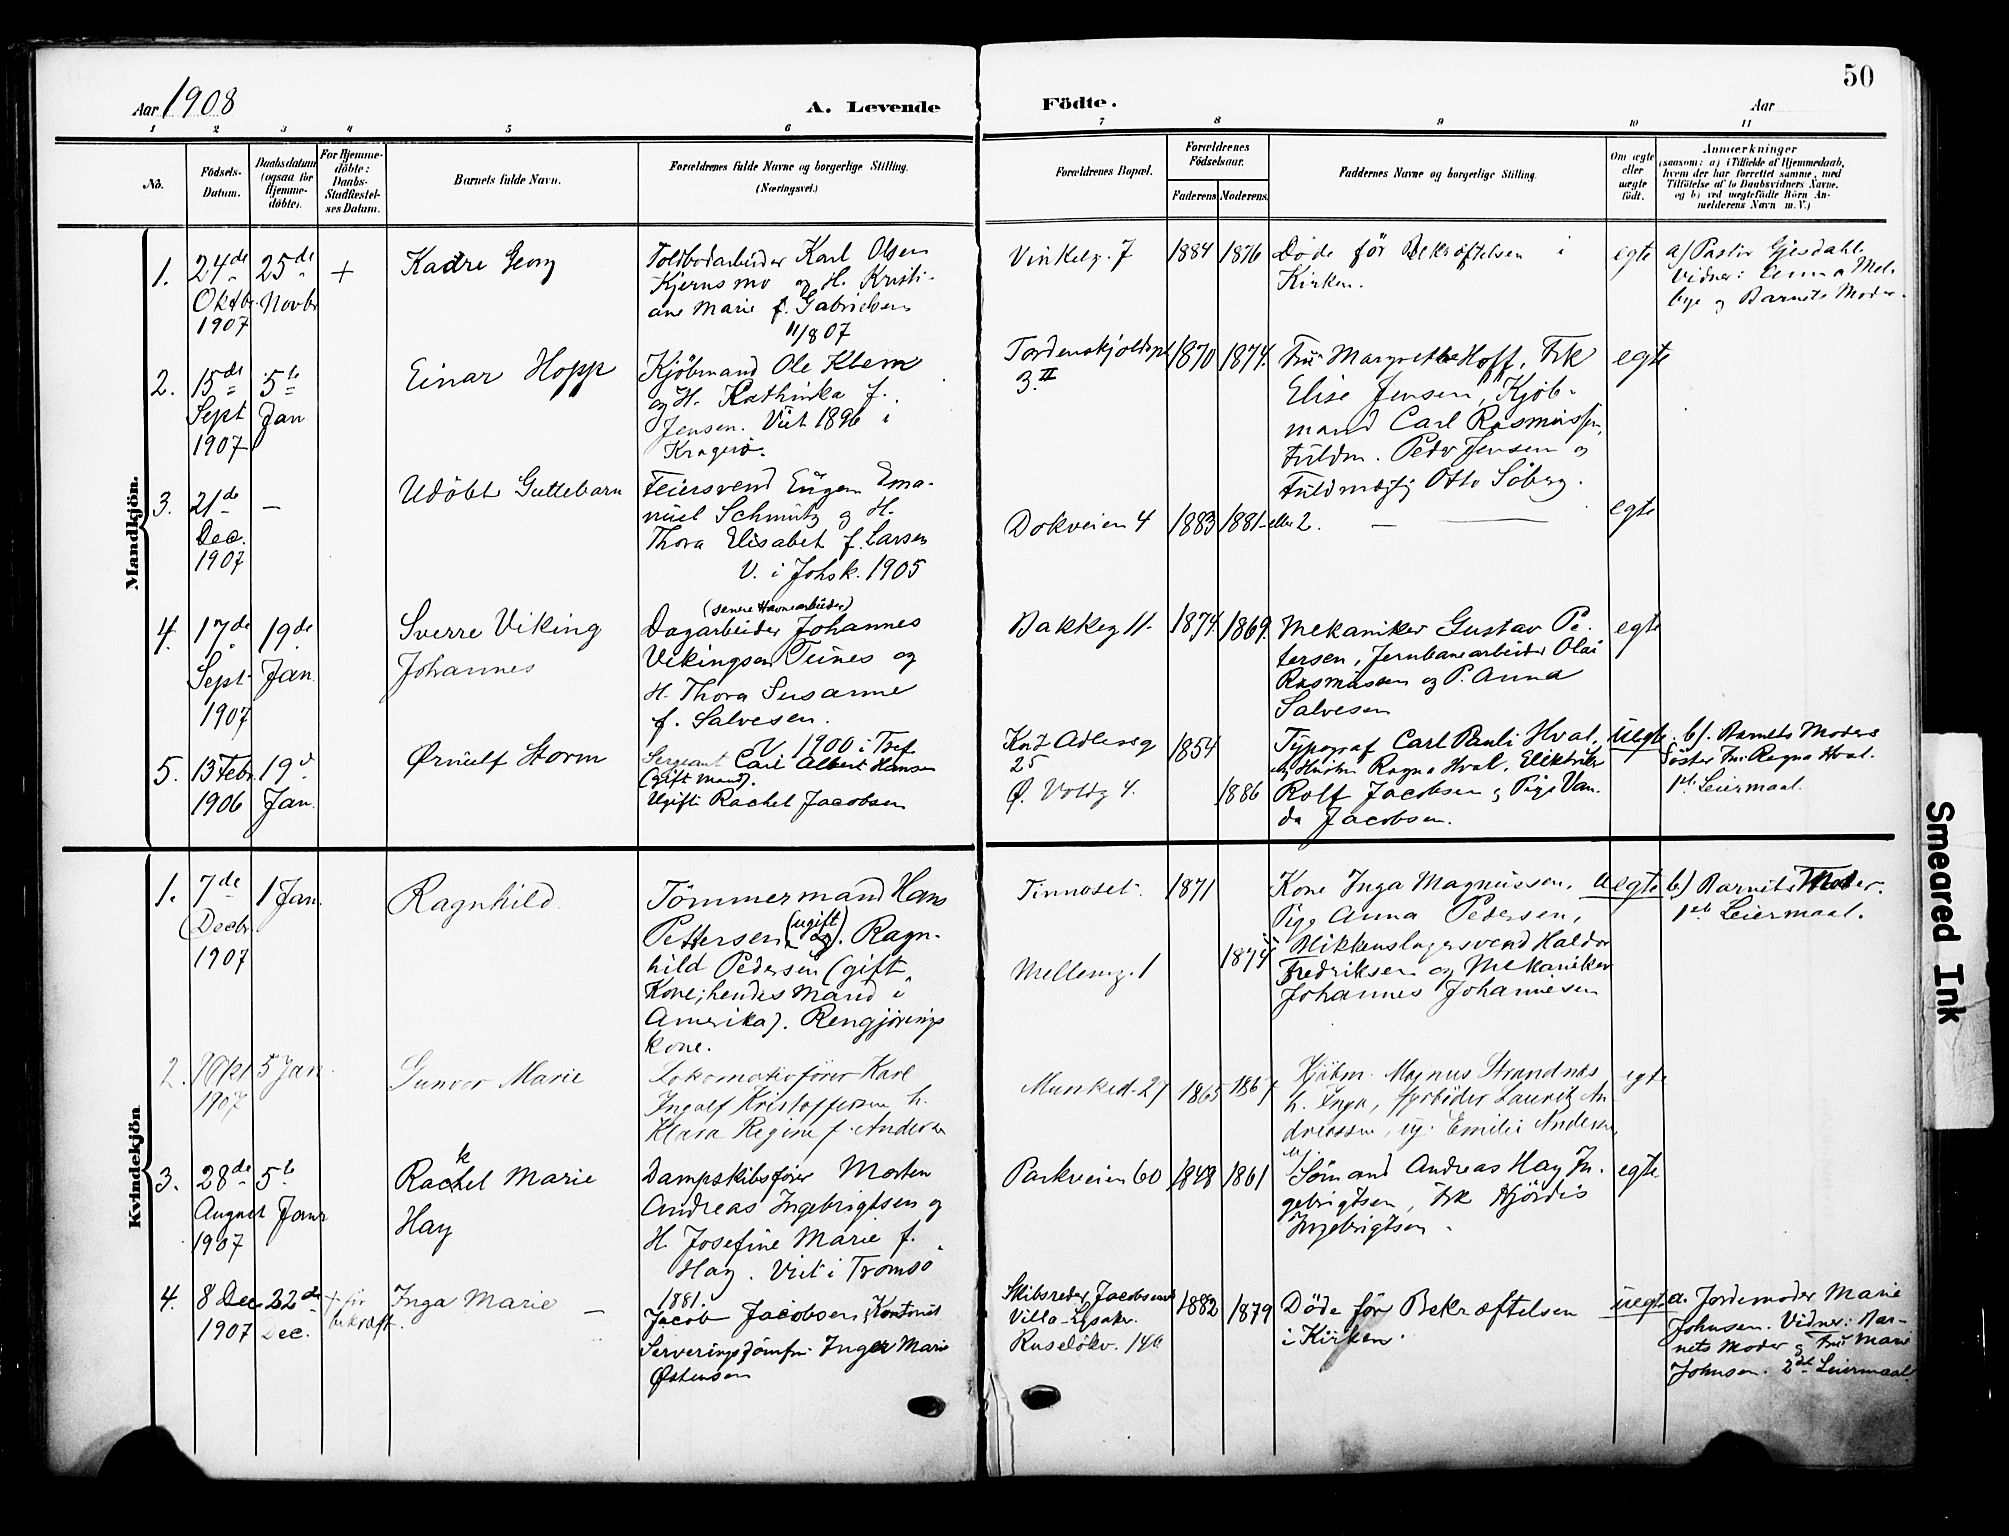 50
Aar 1908
A. Levende
Födte.
Aar
1 2 3 4 5 6 7 8 9 10 11
No.
Födsels-
Datum.
Daabsdatum
(ogsaa for
Hjemme-
döbte).
For Hjemme-
döbte:
Daabs-
Stadfæstel-
ses Datum.
Barnets fulde Navn.
Forældrenes fulde Navne og borgerlige Stilling.
(Næringsvei.)
Forældrenes Bopæl.
Forældrenes
Födselsaar.
Faderens.
Moderens.
Faddernes Navne og borgerlige Stilling.
Om ægte
eller
uægte
födt.
Anmærkninger
(saasom: a) i Tilfælde af Hjemmedaab,
hvem der har forrettet samme, med
Tilföielse af to Daabsvidners Navne,
og b) ved uægtefödte Börn An-
melderens Navn m. V.)
Mandkjön.
1.
24de
Oktbr.
1907
25de
Novbr
+
Kaare Georg
Toldbodarbeider Karl Olsen
Kjernsmo og H. Kristi-
ane Marie f. Gabrielsen
11/8 07
Vinkelg. 7
1884
1876
Döde för Bekræftelsen i
Kirken.
egte
a/ Pastor Gjesdahl.
Vidner: Emma Mel-
bye og Barnets Moder.
2.
15de
Sept
1907
5te
Jan
Einar Hopp
Kjöbmand Ole Klem
og H. Kathinka f.
Jensen. Viet 1896 i
Kragerö.
Tordenskjoldspl
3.II
1870
1874.
Fru Margrethe Hoff, Frk
Elise Jensen, Kjöb-
mand Carl Rasmussen,
Fuldm. Peder Jensen og
Fuldmægtig Otto Söberg.
egte
3.
21de
Dec.
1907
—
Udöbt Guttebarn
Feiersvend Eugen Ema-
nuel Schmutz og H.
Thora Elisabet f. Larsen
V. i Johsk. 1905
Dokveien 4
1883
1881 eller 2.
— —
egte
4.
17de
Sept
1907
19de
Jan
Sverre Viking
Johannes
(senere Havnearbeider)
Dagarbeider Johannes
Vikingsen Tunes og
H. Thora Susanne
f. Salvesen.
V. 1900 i Tref.
Bakkeg 11.
1874.
1869.
Mekaniker Gustav Pe-
tersen, Jernbanearbeider Olai
Rasmussen og P. Anna
Salvesen
egte
5.
13 Febr.
1906
19d
Jan.
Ørnulf Storm
Sergeant Carl Albert Hansen
(gift mand).
Ugift: Rachel Jacobsen
Kort Adlersg
25
Ø. Voldg 4.
1854
1886
Typograf Carl Pauli Hval,
og Hustru Ragna Hval, Elektriker
Rolf Jacobsen og Pige Van-
da Jacobsen.
uegte
b/. Barnets Moders
Söster Fru Ragna Hval.
1ste Leiermaal.
Kvindekjön
1.
7de
Decbr.
1907
1 Jan.
Ragnhild
Tömmermand Hans
Pettersen (ugift) og. Ragn-
hild Pedersen (gift,
Kone; hendes Mand i
Amerika). Rengjörings
kone.
Tinnoset.
Mellemg. 1
1871
1874
Kone Inga Magnussen,
Pige Anna Pedersen,
Blikkenslagersvend Haldor
Fredriksen og Mekaniker
Johannes Johannesen
uegte
b) Barnets Moder.
1ste Leiermaal.
2.
Okt
1907
5 Jan
Gunvor Marie
Lokomotivförer Karl
Ingolf Kristoffersen h.
Klara Regine f. Andersen
Munked. 27
1865
1867
Kjöbm. Magnus Strandnæs
h. Inga, Fyrböder Lauritz An-
dreassen, ug. Emilie Andersen,
egte
3.
28de
August
1907
5te
Janr
k
Rachel Marie
Hay
Dampskibsförer Morten
Andreas Ingebrigtsen og
H. Josefine Marie f.
Hay. Viet i Tromsö
1881.
Parkveien 60
1848
1861
Sömand Andreas Hay In-
gebrigtsen, Frk Hjördis
Ingebrigtsen.
egte
4.
8 Dec
1907
22de
Dec.
+ för
bekræft.
Inga Marie —
Jacob Jacobsen, Kontorist
Serveringsjomfru Inger Marie
Østensen
Skibsreder Jacobsens
Villa Lysaker.
Ruselökv. 14b
1882
1879
Döde för Bekræftelsen
i Kirken.
uegte
a. Jordemoder Marie
Johnsen. Vidner: Bar-
nets Moder og Fru Marie
Johnsen. 2det Leiermaal.
Smeared Ink